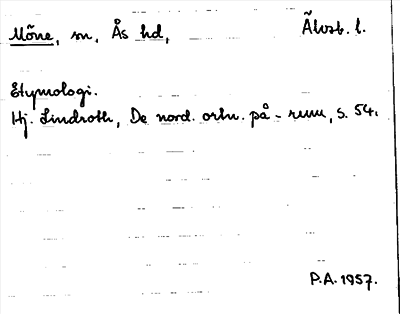 Mõne, sn, Ås hd, Älvsb. l.
Etymologi.
Hj. Lindroth, De nord. ortn. på -rum, s. 54.
P.A. 1957.